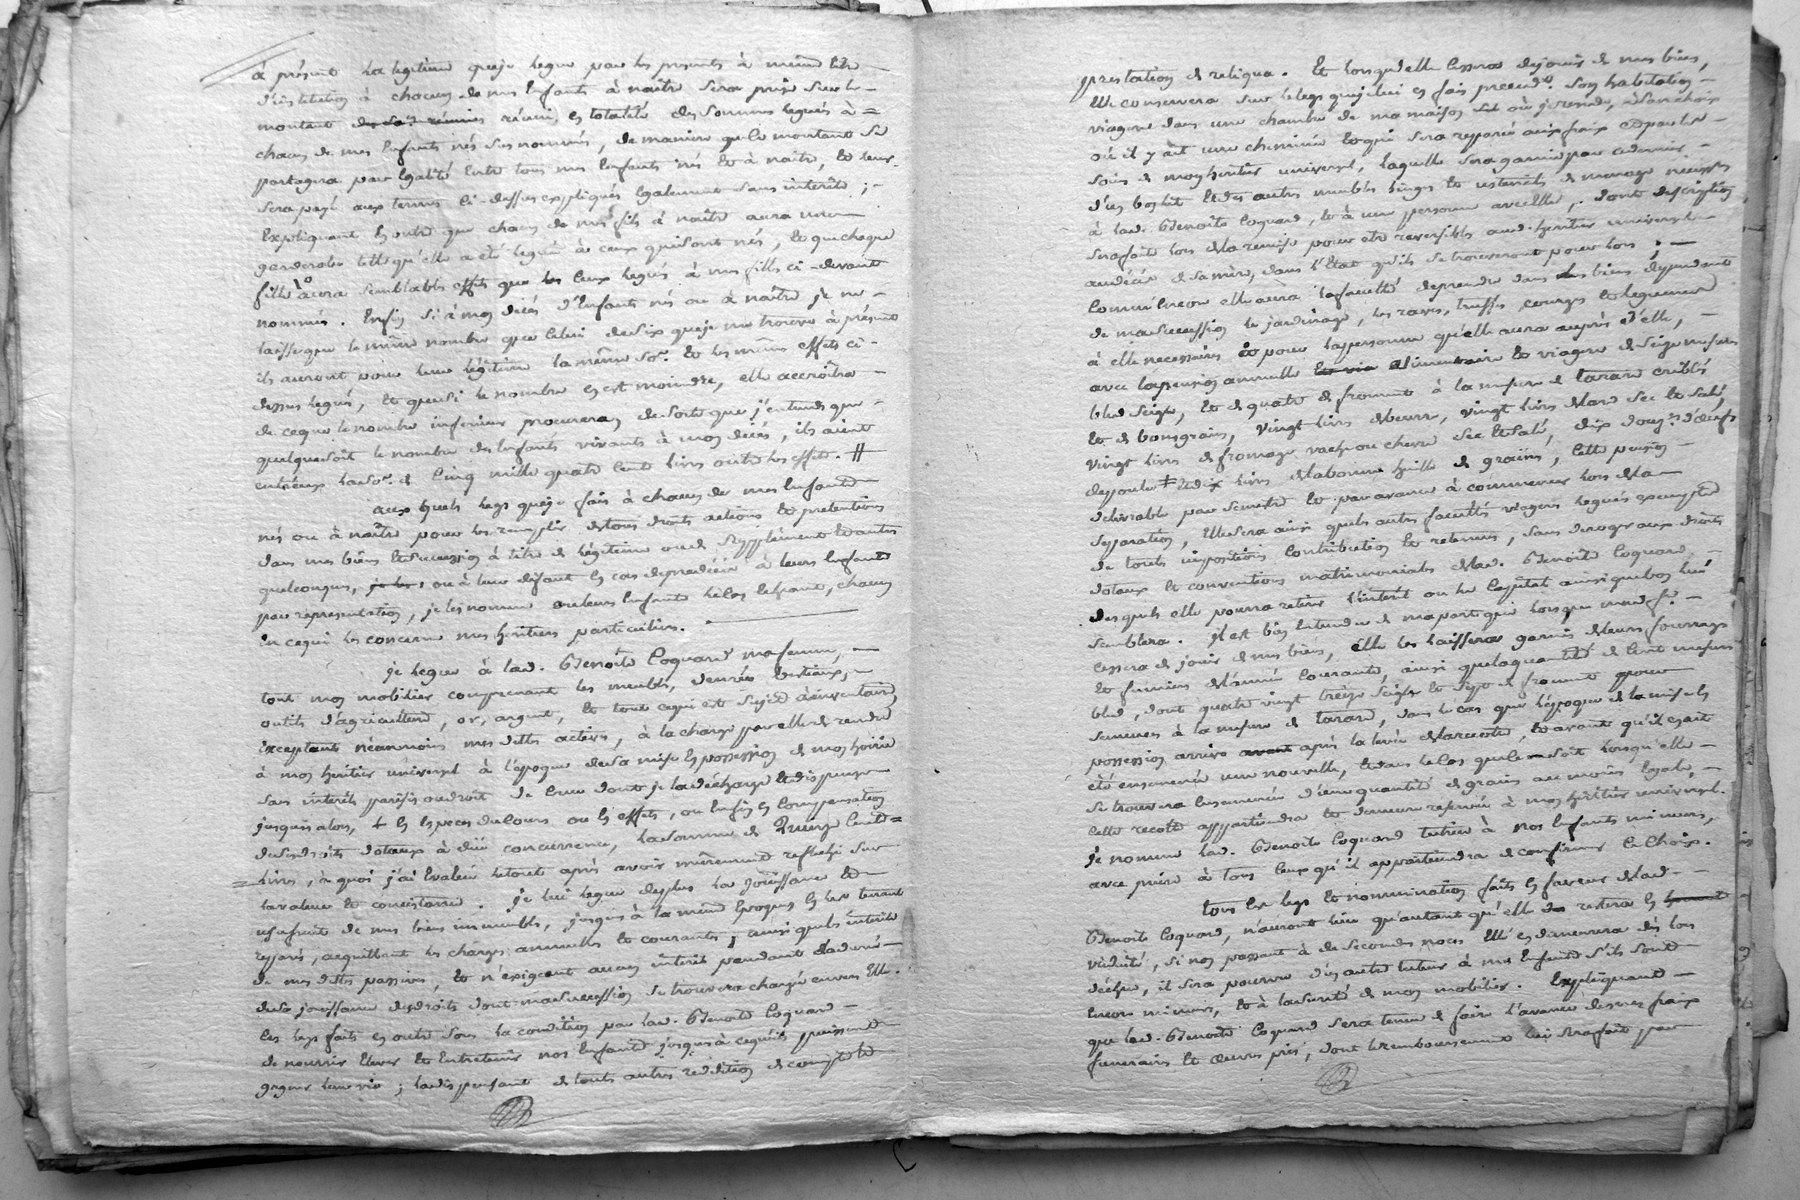 à présent La legitime queje legue par les presents à meme titre
d'institution à chacun de mes Enfants à naître sera prise sur le
montant des sd. réunies réuni, en totalité des sommes leguées à =
chacun de mes Enfants nés sus nommés, de maniere que le montant se
partagera par Egalité Entre tous mes Enfants nés et à naître, et leur
sera payé aux termes ci-dessus expliqués Egalement sans interêts ;
Expliquant En outre que chacun de mes fils à naître aura une
garderobe telle qu'elle a été leguée à ceux qui sont nés, et que chaque
fille aura semblables effets que les ceux legués à mes filles ci-devant
nommées. Enfin si à mon décès d'Enfants nés ou à naître je ne
laisse que le même nombre que celui de six queje me trouve à présent
ils auront pour leur légitime la même so.e et les mêmes effets ci-
dessus legués, et que si le nombre en est moindre, elle accroîtra
de ceque le nombre inferieur procurera, de sorte que j'entends que
quelque soit le nombre des Enfants vivants à mon décès, ils aient
entr'eux la so.e de Cinq mille quatre Cent livres outre les effets.
aux quels legs queje fais à chacun de mes Enfants
nés ou à naître pour les remplir de tous droits actions et pretentions
dans mes biens et succession à titre de légitime ou de supplément et autres
quelconques, je les ou à leur défaut En cas de prédécès à leurs Enfants
par representation, je les nomme ou leurs Enfants le Cas Echeant, chacun
En cequi les concerne mes heritiers particuliers.
je legue à lad. Benoîte Coquard ma femme,
tout mon mobilier comprenant les meubles, denrées bestiaux,
outils d'agriculture, or, argent, et tout cequi est sujet à inventaire,
exceptant néanmoins mes dettes actives, à la charge par elle de rendre
à mon héritier universel à l'époque de sa mise En possession de mon hoirie
sans interêts parisis ou droit de Crue dont je la décharge et dispense
jusques alors, + En Especes du Cours ou En effets, ou Enfin En Compensation
de ses droits dotaux à düe concurrence, la somme de Quinze Cents =
livres, à quoi j'ai Evalué le tout après avoir mûrement reflechi sur
la valeur et consistance. je lui legue de plus La joüissance et
usufruit de mes biens immeubles, jusques à la même Epoque En les tenant
reparés, acquittant les charges annuelles et courantes ; ainsi que les interêts
de mes dettes passives, et n'exigeant aucun interêt pendant la durée
de sa joüissance des droits dont ma succession se trouvera chargée envers Elle.
Ces legs faits En outre sous la condition par lad. Benoîte Coquard
de nourrir Elever et Entretenir nos Enfants jusques à cequ'ils puissent
gagner leur vie ; la dispensant de toute autre reddition de compte et
prestation de reliqua. Et lorsqu'elle Cessera de joüir de mes biens,
Elle conservera sur le legs queje lui En fais precedt. Son habitation
viagere dans une chambre de ma maison où je reside, à son choix
où il y ait une cheminée et qui sera reparée aux frais et par les
soins de mon heritier universel, laquelle sera garnie par ce dernier
d'un bon lit et des autres meubles linges et ustensiles de menage necessaires
à lad. Benoîte Coquard, et à une personne avec elle, dont description
sera faite lors de la remise pour etre reversibles aud. heritier universel
au décès de sa mère, dans l'Etat qu'ils se trouveront pour lors ;
Comme Encore elle aura la faculté de prendre dans les biens dépendants
de ma succession le jardinage, les raves, truffes, courges et legumes
à elle necessaires et pour la personne qu'elle aura auprès d'elle,
avec la pension annuelle et via alimentaire et viagere de seize mesures
bled seigle, et de quatre de froment à la mesure de Tarare criblés
et de bons grains, Vingt livres de beurre, vingt livres de lard sec et salé,
vingt livres de fromage vache ou chevre sec et salé, dix douz.nes d'oeufs
de poule et dix livres de la bonne huille de graines, Cette pension
delivrable par semestre et par avance à commencer lors de la
separation, Elle sera ainsi que les autres facultés viageres leguées exempte
de toutes impositions Contribution et retenues, sans deroger aux droits
dotaux et conventions matrimoniales de lad. Benoîte Coquard,
desquels elle pourra retirer l'interêt ou le Capital ainsi que bon lui
semblera. Il est bien Entendu de ma part que lorsque ma d.e f.e
Cessera de joüir de mes biens, Elle les laissera garnis de leurs fourrages
et fumiers de l'année Courante, ainsi que la quantité de Cent mesures
bled, dont quatre vingt treize seigle et sept de froment pour
semences à la mesure de Tarare, dans le cas que l'époque de la mise En
possession arrive avant après la levée de la recolte, et avant qu'il en ait
été ensemencé une nouvelle, et dans le Cas que le soit lorsqu'elle
se trouvera Ensemencée d'une quantité de grains au moins Egale,
cette recolte appartiendra et demeure reservée à mon héritier universel.
Je nomme lad. Benoîte Coquard tutrice à nos Enfants mineurs,
avec priere à tous Ceux qu'il appartiendra de confirmer Ce Choix.
Tous Les legs et nomination faits En faveur de lad.
Benoîte Coquard, n'auront lieu qu'autant qu'elle restera En
viduité, si non passant à de secondes noces Elle En demeurera dès lors
déchue, il sera pourvu d'un autre tuteur à mes Enfants s'ils sont
Encore mineurs, et à la sureté de mon mobilier. Expliquant
que lad. Benoîte Coquard sera tenue de faire l'avance de mes frais
funeraires et oeuvres pies, dont le remboursement lui sera fait par